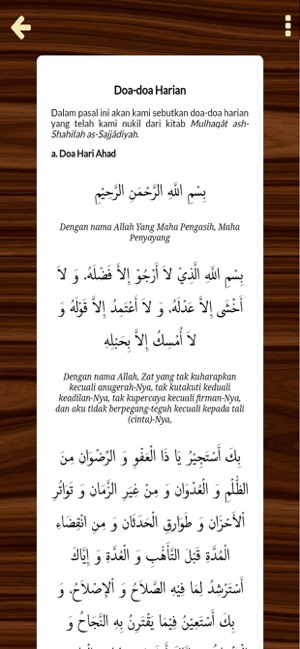 Doa-doa Harian
Dalam pasal ini akan kami sebutkan doa-doa harian
yang telah kami nukil dari kitab Mulhaqât ash-
Shahifah as-Sajjâdiyah.
a. Doa Hari Ahad
بِسْمِ اللَّهِ الرَّحْمَنِ الرَّحِيْمِ
Dengan nama Allah Yang Maha Pengasih, Maha
Penyayang
بِسْمِ اللَّهِ الَّذِيْ لاَ أَرْجُوْ إِلاَّ فَضْلَهُ، وَ لاَ
أَخْشَى إِلاَّ عَدْلَهُ، وَ لاَ أَعْتَمِدُ إِلاَّ قَوْلَهُ وَ
لاَ أُمْسِكُ إِلاَّ بِحَبْلِهِ
Dengan nama Allah, Zat yang tak kuharapkan
kecuali anugerah-Nya, tak kutakuti keduali
keadilan-Nya, tak kupercaya kecuali firman-Nya,
dan aku tidak berpegang-teguh kecuali kepada tali
(cinta)-Nya,
بِكَ أَسْتَجِيْرُ يَا ذَا الْعَفْوِ وَ الرِّضْوَانِ مِنَ
الظُّلْمِ وَ الْعُدْوَانِ وَ مِنْ غِيَرِ الزَّمَانِ وَ تَوَاتُرِ
الْأَحْزَانِ وَ طَوَارِقِ الْحَدَثَانِ وَ مِنِ انْقِضَاءِ
الْمُدَّةِ قَبْلَ التَّأَهُّبِ وَ الْعُدَّةِ وَ إِيَّاكَ
أَسْتَرْشِدُ لِمَا فِيْهِ الصَّلاَحُ وَ الْإِصْلاَحُ، وَ
بِكَ أَسْتَعِيْنُ فِيْمَا يَقْتَرِنُ بِهِ النَّجَاحُ وَ